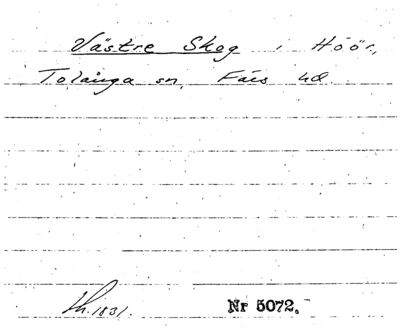 Västre Skog i Höör,
Tolånga sn, Färs hd.
Lh. 1831.
Nr 5072.